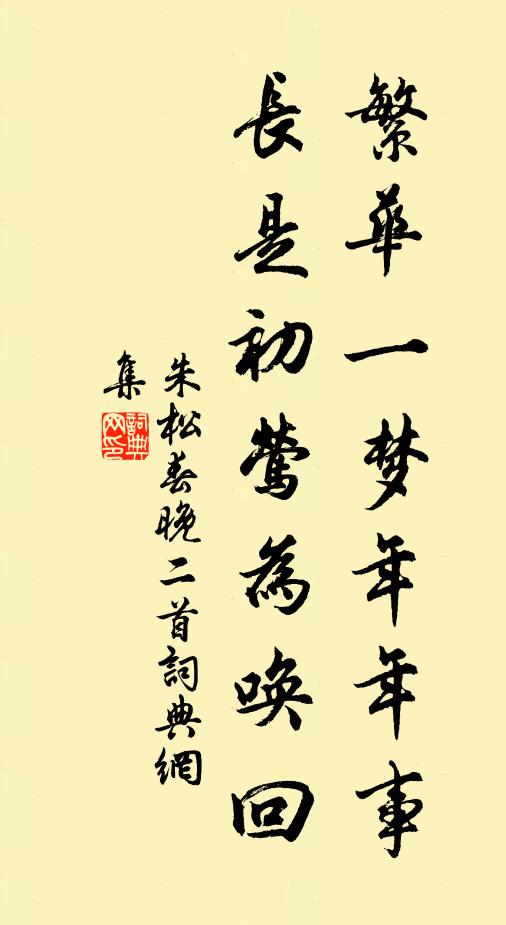 繁華一梦年年事
長是初莺為唤回
朱松春晚二首詞典網
集
詞典
网印